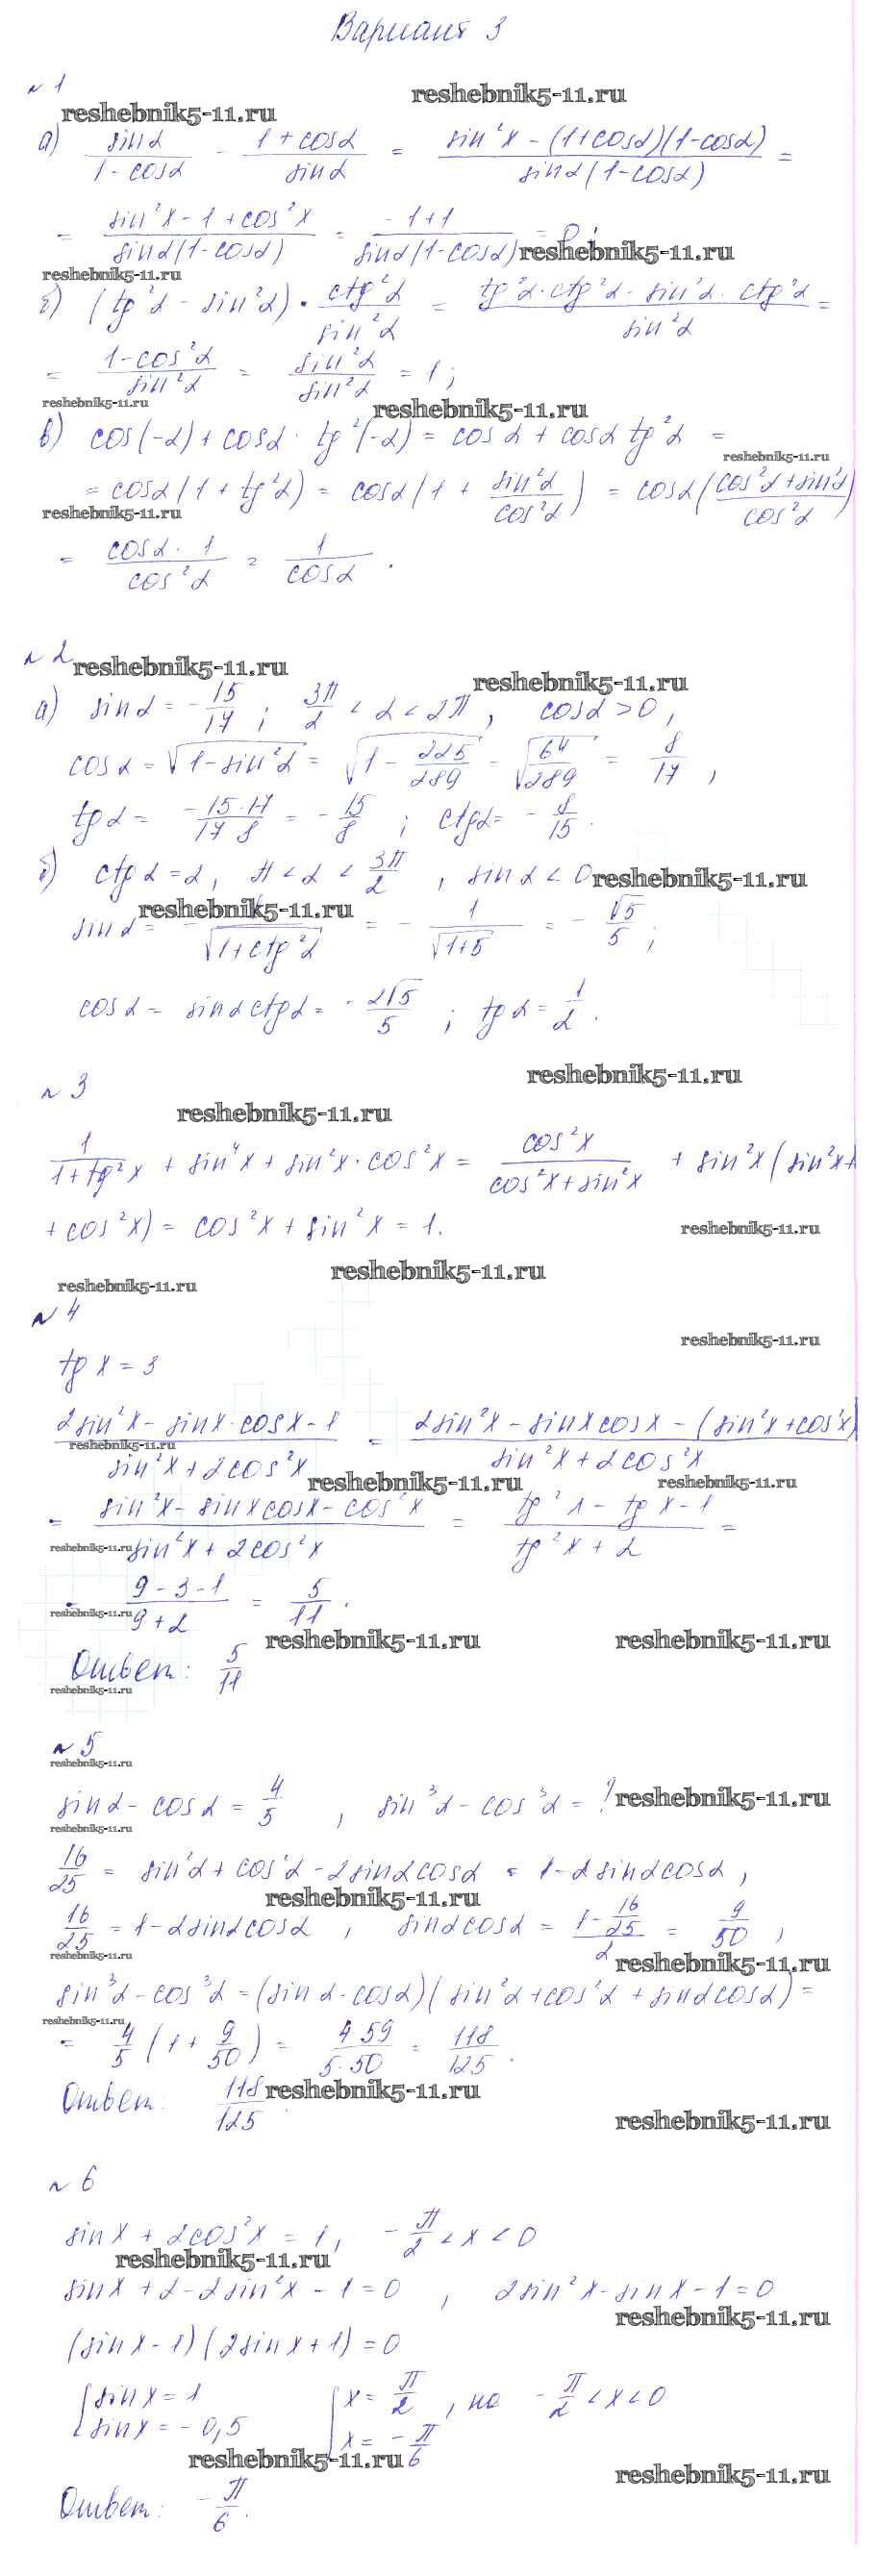 Вариант 3
№ 1
reshebnik5-11.ru reshebnik5-11.ru
а) sinα/(1 - cosα) - (1 + cosα)/sinα = (sin²x - (1+cosα)(1-cosα))/(sinα(1-cosα)) =
= (sin²x - 1 + cos²x)/(sinα(1-cosα)) = (-1+1)/(sinα(1-cosα)) = 0;
reshebnik5-11.ru
reshebnik5-11.ru
б) (tg²α - sin²α) · ctg²α/sin²α = (tg²α·ctg²α - sin²α·ctg²α)/sin²α =
= (1-cos²α)/sin²α = sin²α/sin²α = 1;
reshebnik5-11.ru reshebnik5-11.ru
в) cos(-α) + cosα · tg²(-α) = cosα + cosα tg²α =
reshebnik5-11.ru
= cosα(1 + tg²α) = cosα(1 + sin²α/cos²α) = cosα((cos²α+sin²α)/cos²α)
reshebnik5-11.ru
= (cosα · 1)/cos²α = 1/cosα .
№ 2
reshebnik5-11.ru reshebnik5-11.ru
а) sinα = -15/17 ; 3π/2 < α < 2π, cosα > 0,
cosα = √(1-sin²α) = √(1 - 225/289) = √(64/289) = 8/17 ,
tgα = -(15·17)/(17 8) = -15/8 ; ctgα = -8/15 .
б) ctgα = 2, π < α < 3π/2 , sinα < 0
reshebnik5-11.ru
reshebnik5-11.ru
sinα = - 1/√(1+ctg²α) = - 1/√(1+5) = - √5/5 ;
cosα = sinα ctgα = - 2√5/5 ; tgα = 1/2 .
reshebnik5-11.ru
№ 3
reshebnik5-11.ru
1/(1+tg²x) + sin⁴x + sin²x · cos²x = cos²x/(cos²x + sin²x) + sin²x (sin²x+
+ cos²x) = cos²x + sin²x = 1.
reshebnik5-11.ru
reshebnik5-11.ru
reshebnik5-11.ru
№ 4
reshebnik5-11.ru
tg x = 3
(2sin²x - sinx·cosx - 1)/(sin²x + 2cos²x) = (2sin²x - sinx cosx - (sin²x + cos²x))/(sin²x + 2cos²x)
reshebnik5-11.ru
reshebnik5-11.ru reshebnik5-11.ru
= (sin²x - sinx cosx - cos²x)/(sin²x + 2cos²x) = (tg²x - tg x - 1)/(tg²x + 2) =
reshebnik5-11.ru
= (9 - 3 - 1)/(9 + 2) = 5/11 .
reshebnik5-11.ru
reshebnik5-11.ru reshebnik5-11.ru
Ответ: 5/11
reshebnik5-11.ru
№ 5
reshebnik5-11.ru
sinα - cosα = 4/5 , sin³α - cos³α = ?
reshebnik5-11.ru
reshebnik5-11.ru
16/25 = sin²α + cos²α - 2sinαcosα = 1-2sinαcosα,
reshebnik5-11.ru
16/25 = 1-2sinαcosα , sinαcosα = (1 - 16/25)/2 = 9/50 ,
reshebnik5-11.ru reshebnik5-11.ru
sin³α - cos³α = (sinα - cosα)(sin²α + cos²α + sinαcosα) =
reshebnik5-11.ru
= 4/5 (1 + 9/50) = (4 59)/(5·50) = 118/125 .
Ответ: 118/125
reshebnik5-11.ru
reshebnik5-11.ru
№ 6
sinx + 2cos²x = 1, -π/2 < x < 0
reshebnik5-11.ru
sinx + 2 - 2sin²x - 1 = 0 , 2sin²x - sinx - 1 = 0
reshebnik5-11.ru
(sinx - 1)(2sinx + 1) = 0
[sinx = 1 [x = π/2 , но -π/2 < x < 0
sinx = -0,5 x = -π/6
reshebnik5-11.ru
reshebnik5-11.ru
Ответ: -π/6 .